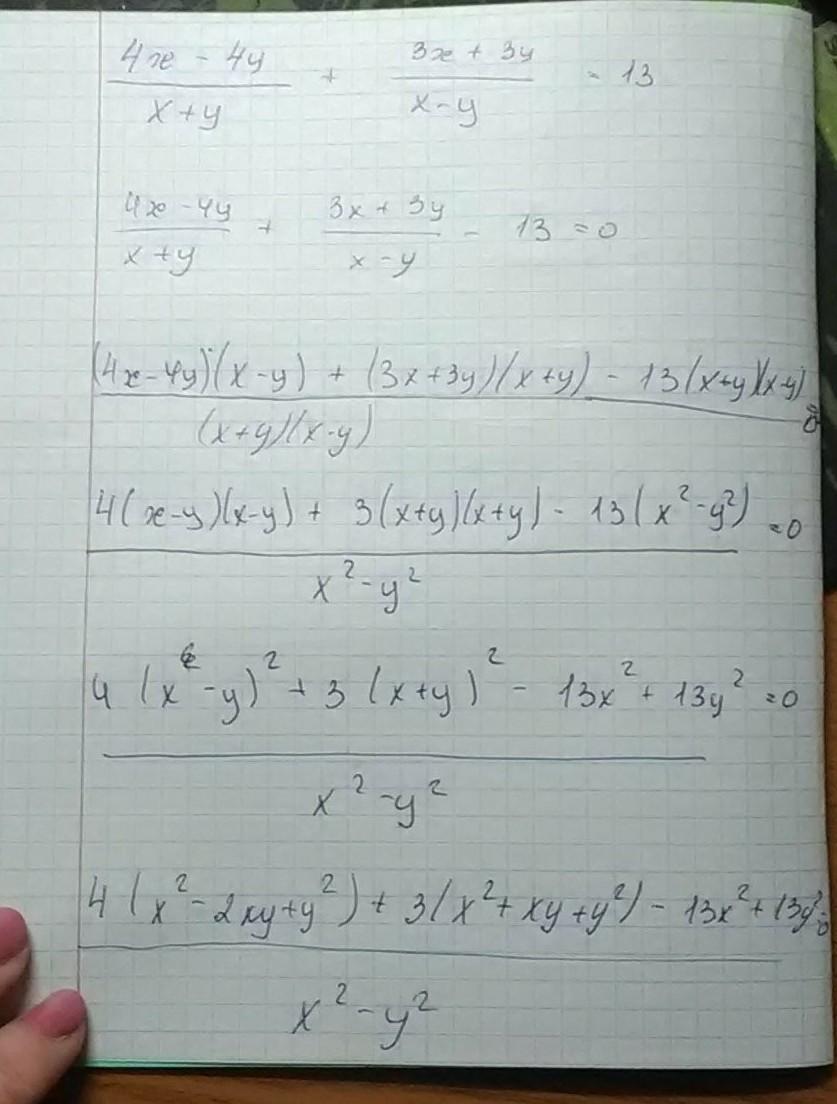 (4x - 4y)/(x + y) + (3x + 3y)/(x - y) = 13
(4x - 4y)/(x + y) + (3x + 3y)/(x - y) - 13 = 0
((4x - 4y)(x - y) + (3x + 3y)(x + y) - 13(x + y)(x - y))/((x + y)(x - y)) = 0
(4(x - y)(x - y) + 3(x + y)(x + y) - 13(x² - y²))/(x² - y²) = 0
(4(x - y)² + 3(x + y)² - 13x² + 13y²)/(x² - y²) = 0
(4(x² - 2xy + y²) + 3(x² + xy + y²) - 13x² + 13y²)/(x² - y²) = 0